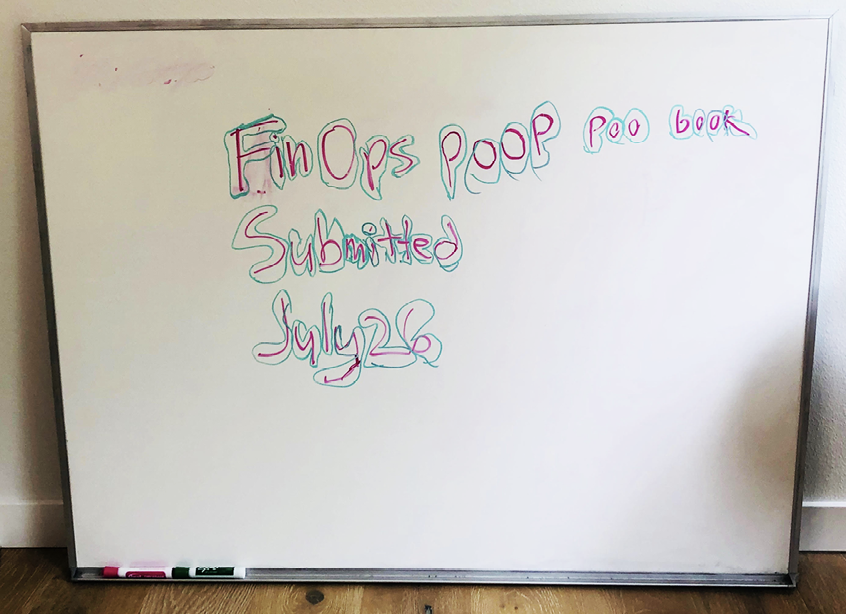 FinOps POOP Poo book
Submitted
July 26